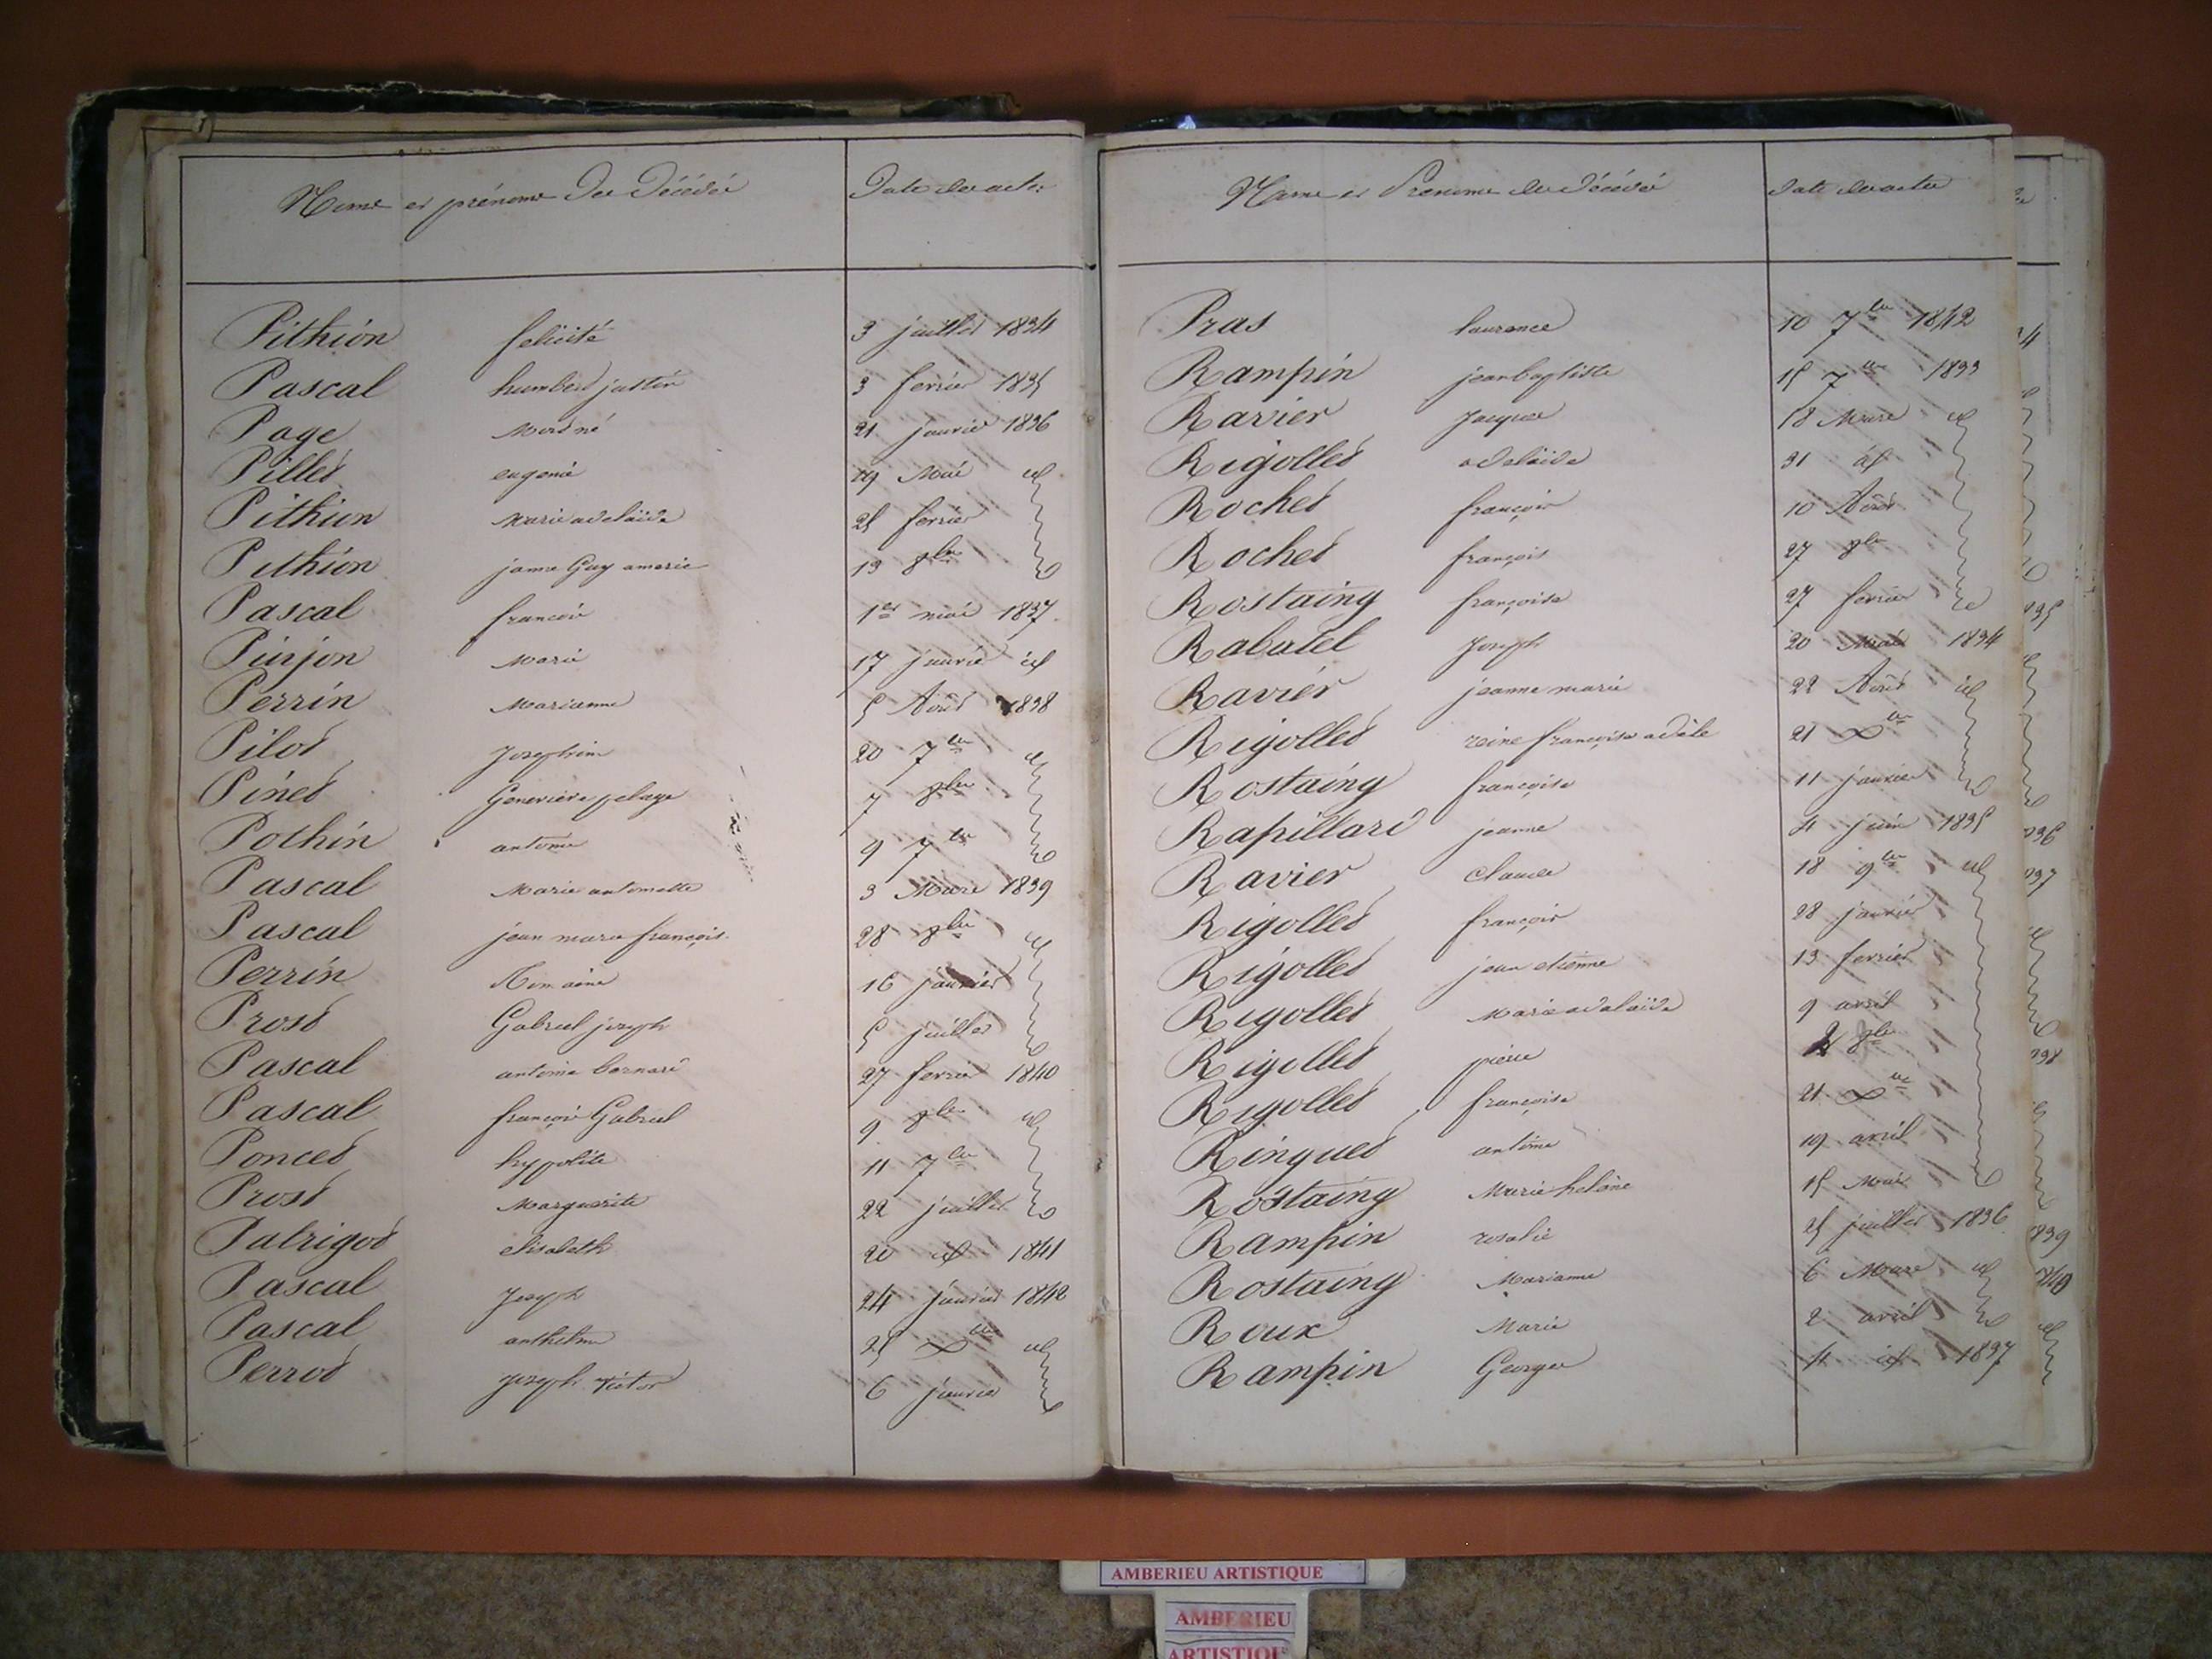 Noms et prénoms des Décédés Date des actes
Pithion felicité 3 juillet 1834
Pascal humbert justin 3 fevrier 1835
Page Mort né 21 janvier 1836
Pillet eugenie 19 Mai id
Pithion Marie adelaïde 25 fevrier
Pithion 13 8bre
Pascal francois 1er mai 1837
Marie 17 janvier id
Perrin Marianne 5 Août 1838
Pilot Josephine 20 7bre id
Pinet Genevieve pelage 7 8bre
Pothin antoine 9 7bre
Pascal Marie antoinette 3 Mars 1839
Pascal jean marie françois 28 8bre id
Perrin Romaine 16 janvier
Prost Gabriel joseph 5 juillet
Pascal antoine bernard 27 fevrier 1840
Pascal françois Gabriel 9 8bre id
Poncet hypolite 11 7bre
Prost Marguerite 22 juillet
Patrigot elisabeth 20 id 1841
Pascal Joseph 24 janvier 1842
Pascal anthelme 25 id
Perrot Joseph Victor 6 janvier
Noms et Prenoms des décédés Date des actes
Pras laurence 10 7bre 1842
Rampin jean baptiste 15 7bre 1833
Ravier Jacques 18 Mars id
Rigollet adelaïde 31 id
Rochet françois 10 Août
Rochet françois 27 8bre
Rostaing françoise 27 fevrier
Rabatel Joseph 20 1834
Ravier jeanne marie 22 Août id
Rigollet reine françoise adèle 21
Rostaing françoise 11 janvier
Rapillard jeanne 4 juin 1835
Ravier claude 18 9bre id
Rigollet françois 28 janvier
Rigollet jean etienne 13 fevrier
Rigollet Marie adelaïde 9 avril
Rigollet pierre 8bre
Rigollet françoise 21
Ringuet antoine 19 avril
Rostaing Marie helène 15 Mai
Rampin rosalie 25 juillet 1836
Rostaing Marianne 6 Mars id
Roux Marie 2 avril
Rampin Georges 4 id 1837
AMBERIEU ARTISTIQUE
AMBERIEU
ARTISTIQU